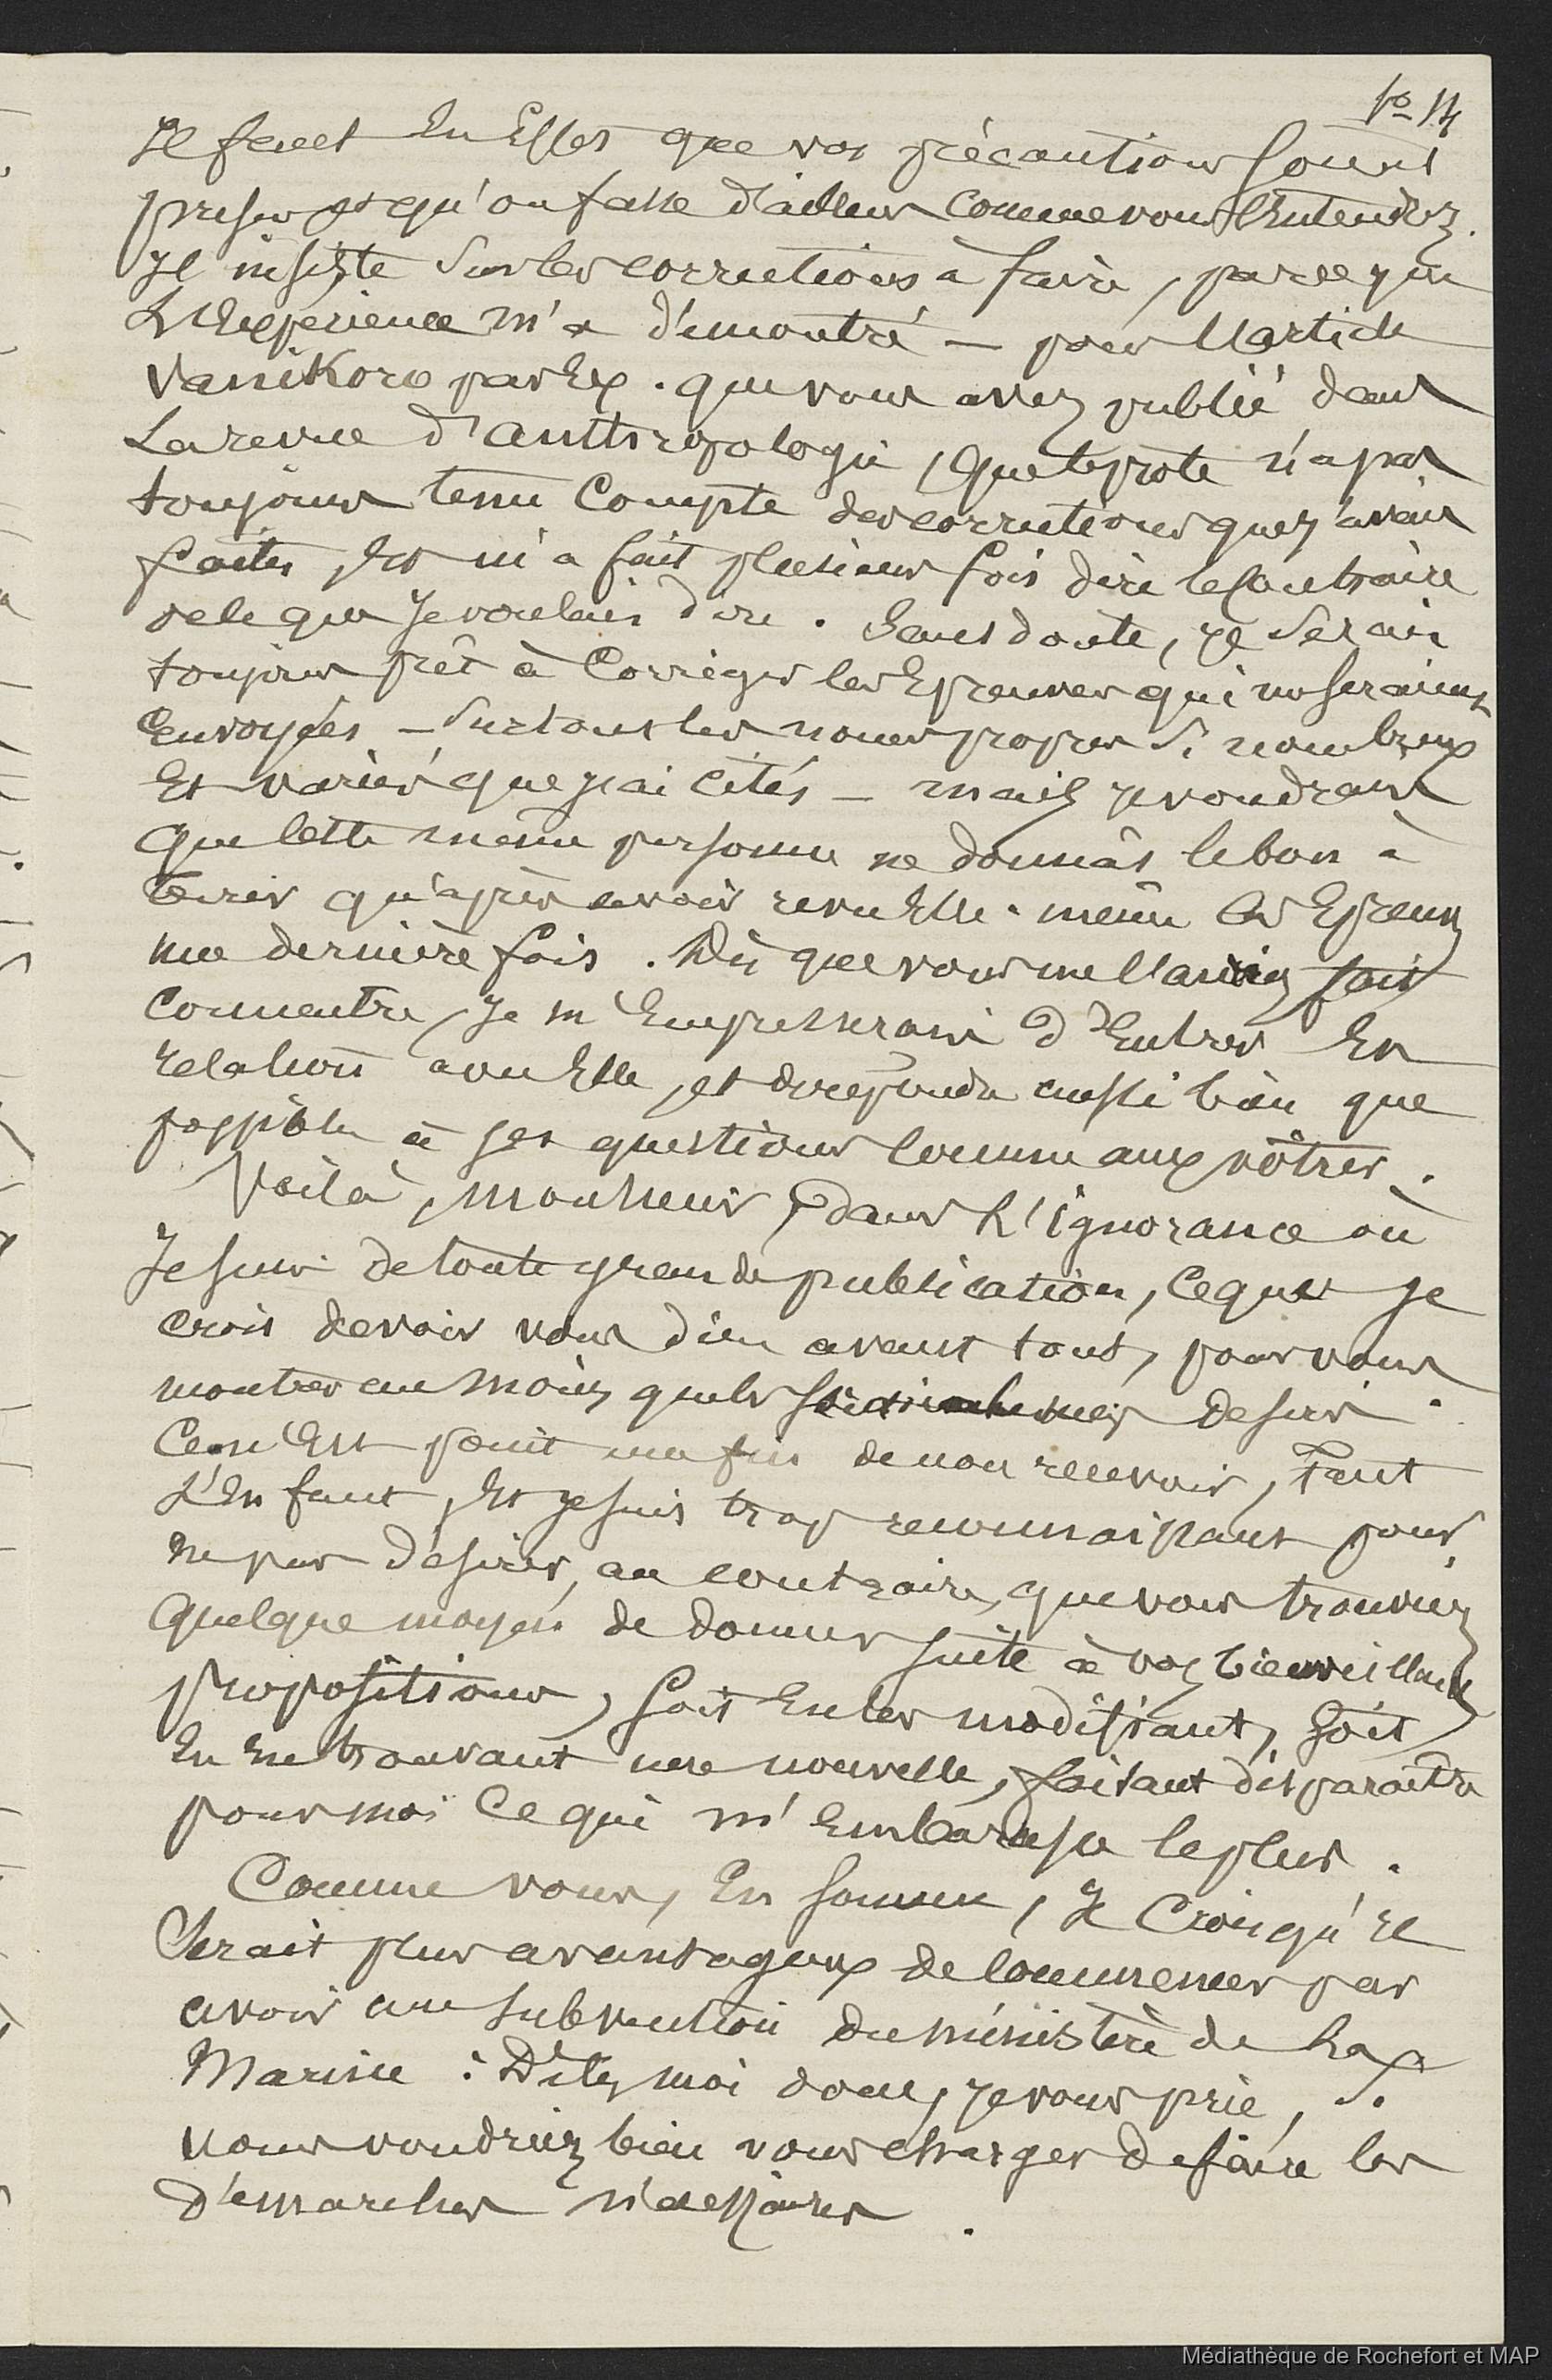 fo 14
Il faut en effet que vos précautions soient
prises et qu'on fasse d'ailleurs comme vous l'entendez.
Je insiste sur les corrections à faire, parce que
L'Expérience m'a démontré — pour l'article
Vanikoro par Ex. que vous avez publié dans
La revue d'anthropologie, que le prote n'a pas
toujours tenu compte des corrections que j'avais
faites, Et m'a fait plusieurs fois dire le contraire
de ce que je voulais dire. Sans doute, je serais
toujours prêt à corriger les Epreuves qui me seraient
Envoyées — surtout les noms propres si nombreux
Et variés que j'ai cités — mais je voudrais
que cette même personne ne donnât le bon à
tirer qu'après avoir revu Elle-même les Epreuves
une dernière fois. Dès que vous me l'auriez fait
connaître, Je m'Empresserais d'Entrer En
relation avec Elle, et de répondre aussi bien que
possible à ses questions comme aux vôtres.
Voilà, monsieur, dans L'ignorance où
Je suis de toute grande publication, ce que je
crois devoir vous dire avant tout, pour vous
montrer au moins quels sont mes desirs.
Ce n'Est point une fin de non recevoir, tant
s'En faut, Et je suis trop reconnaissant pour
ne pas désirer, au contraire, que vous trouviez
quelque moyen de donner suite à vos bienveillantes
propositions, soit En les modifiant, soit
En En trouvant une nouvelle, faisant disparaître
pour moi ce qui m'Embarasse le plus.
Comme vous, En somme, Je crois qu'il
serait plus avantageux de commencer par
avoir une subvention du ministère de La
Marine : Dites moi donc, je vous prie, si
vous voudriez bien vous charger de faire les
démarches nécessaires.
Médiathèque de Rochefort et MAP